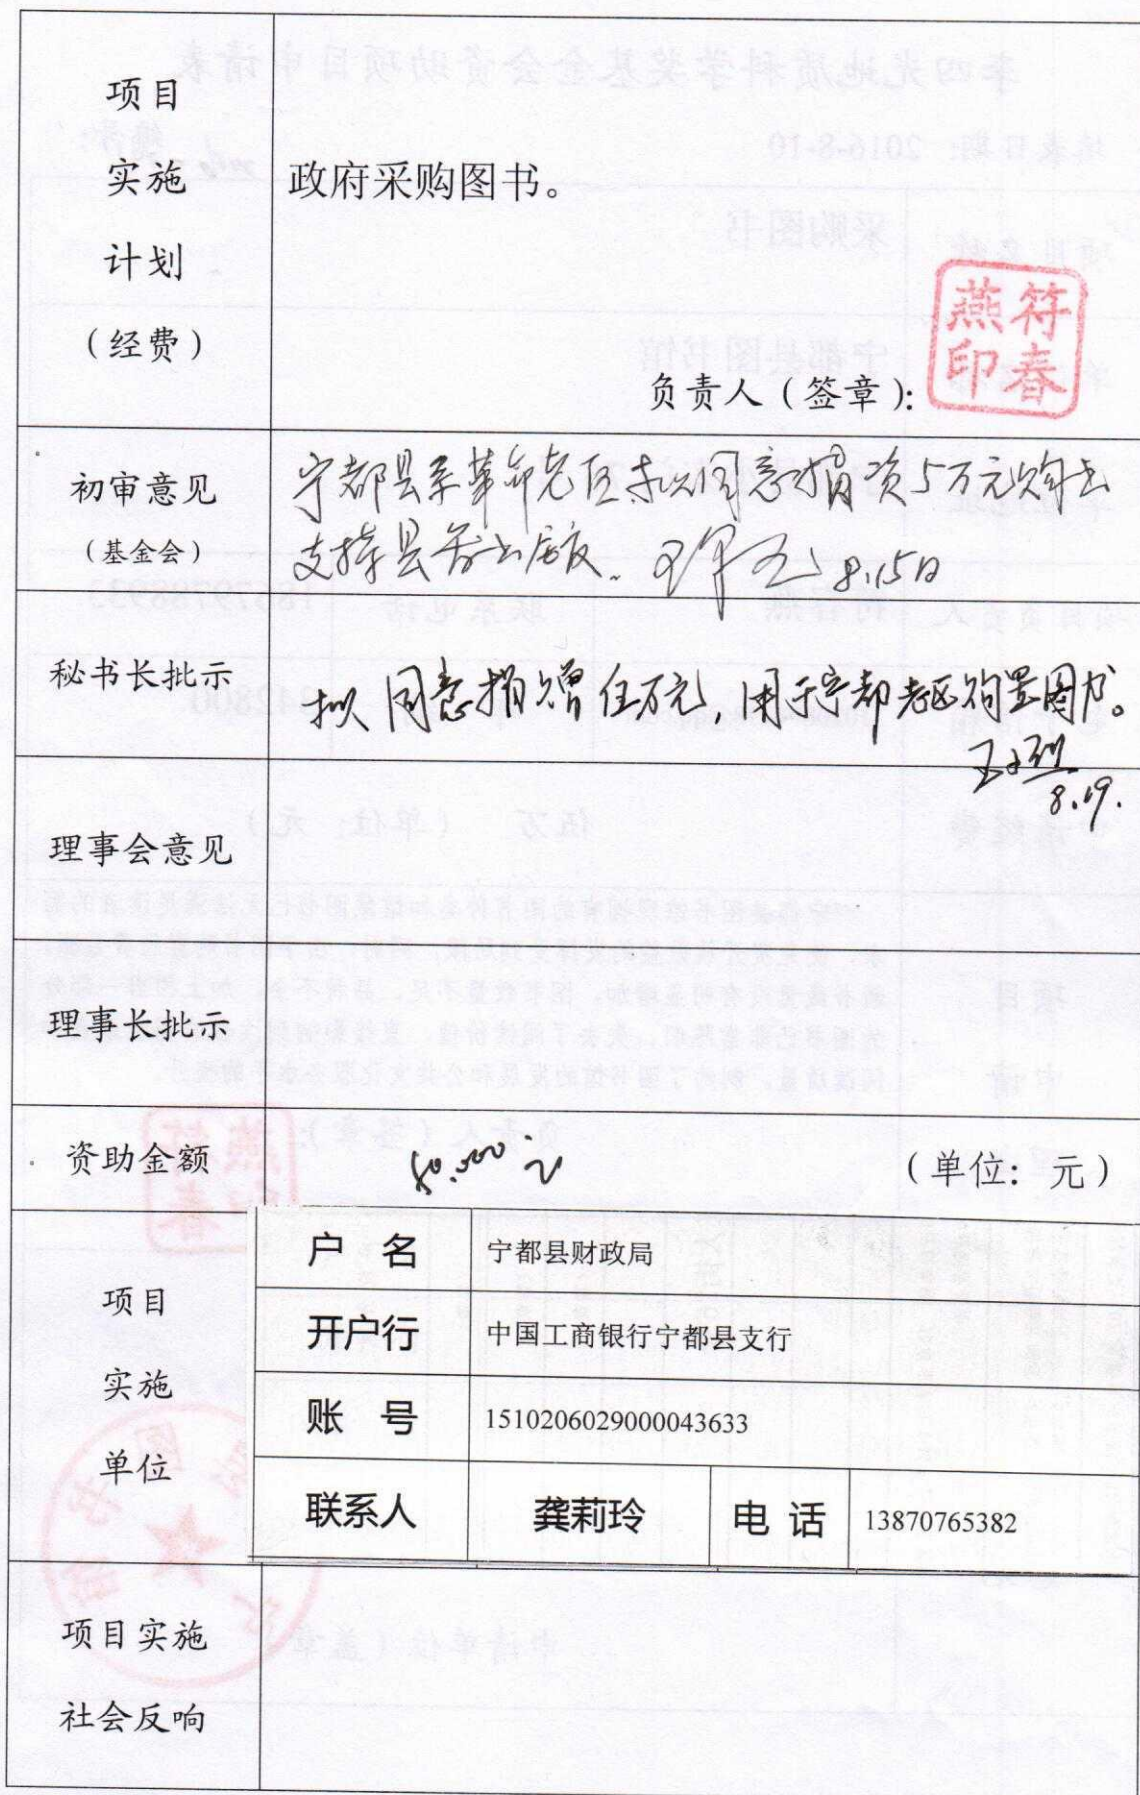 项目
实施
计划
（经费）
政府采购图书。
负责人（签章）：
燕符
印春
初审意见
（基金会）
宁都县系革命老区拟同意捐资5万元购书
支持县 8.15日
秘书长批示
拟同意捐赠伍万元，用于宁都老区购置图书。
8.19.
理事会意见
理事长批示
资助金额
50.000元
（单位：元）
项目
实施
单位
户 名
宁都县财政局
开户行
中国工商银行宁都县支行
账 号
1510206029000043633
联系人
龚莉玲
电 话
13870765382
项目实施
社会反响